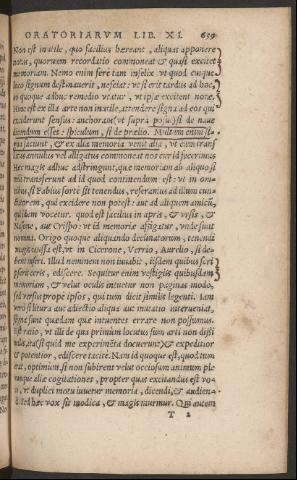 ORATORIARVM LIB. XI. 659
Non est inutile, quo facilius hæreant, aliquas apponere
notas, quarum recordatio commoneat & quasi excitet
memoriam. Nemo enim ferè tam infelix, vt quod cuique
loco signum destinauerit, nesciat: vt si erit tardus ad hoc,
eo quoque adhuc remedio vtatur, vt ipsæ excitent notæ.
Hinc est ex illa arte non inutile, attendere signa ad eos qui
exciderunt sensus: anchoram, vt suprà posui, si de naue
dicendum esset: spiculum, si de prælio. Multum enim si-
gna faciunt, & ex alia memoria venit alia, vt cum trans
latus annulus vel alligatus commoneat nos cur id fecerimus
Hæc magis adhuc adstringunt, qui memoriam ab aliquo si
mili transferunt ad id quod continendum est: vt in no-
minibus, si Fabius fortè sit tenendus, referamus ad illum cun-
ctatorem, qui excidere non potest: aut ad aliquem amicũ,
qui idem vocetur. quod est facilius in apris, & vrsis, &
Nasone, aut Crispo: vt id memoriæ affigatur, vnde sunt
nomina. Origo quoque aliquando declinatorum, tenendi
magis causa est, vt in Cicerone, Verrio, Aurelio, si de-
bent inferi. Illud neminem non iuuabit, iisdem quibus scri
pserit ceris, ediscere. Sequitur enim vestigiis quibusdam
memoriam, & velut oculis intuetur non paginas modò,
sed versus propè ipsos, qui tum dicit similis legenti. Iam
verò si litura aut adiectio aliqua aut mutatio interueniat,
signa sunt quædam quæ intuentes errare non possumus.
Est ratio, vt illi de qua primum locutus sum arti non dissi
milis, ita (si quid me experimẽta docuerunt) & expeditior
& potentior, ediscere tacitè. Nam id quoque est, quod tum
erat, optimum, si non subirent velut occiosum animum ple
runque aliæ cogitationes, propter quas excitandus est vo-
ce, vt duplici motu iuuetur memoria, dicendi, & audien-
di. sed hæc vox sit modica, & magis murmur. Qui autem
T 2